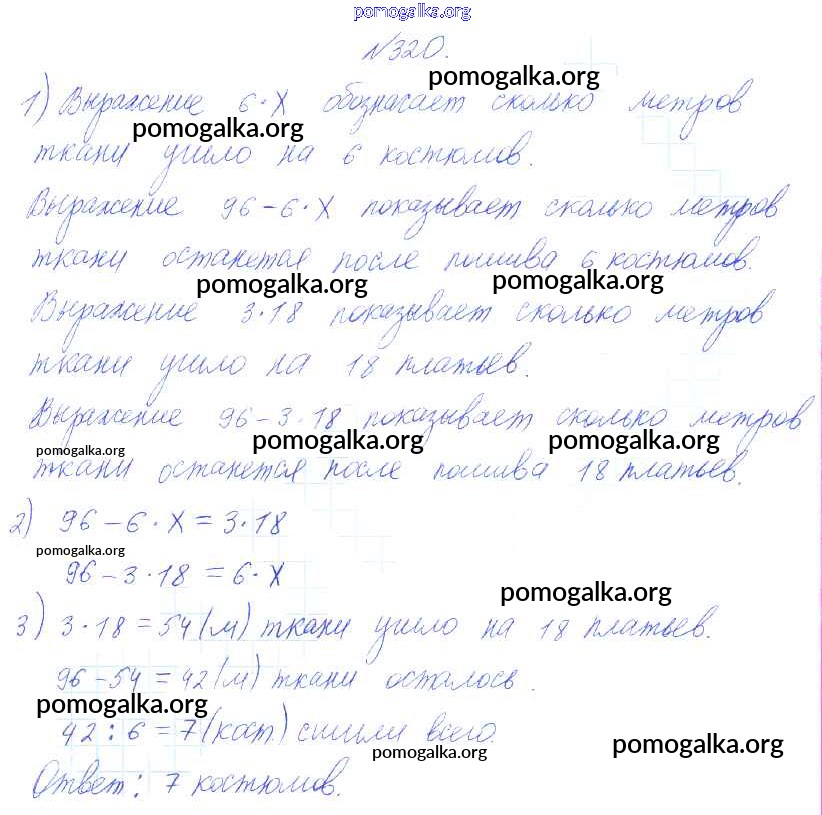 pomogalka.org
№320.
pomogalka.org
1) Выражение 6·X обозначает сколько метров
pomogalka.org
ткани ушло на 6 костюмов.
Выражение 96-6·X показывает сколько метров
ткани останется после пошива 6 костюмов.
pomogalka.org pomogalka.org
Выражение 3·18 показывает сколько метров
ткани ушло на 18 платьев.
Выражение 96-3·18 показывает сколько метров
pomogalka.org pomogalka.org pomogalka.org
ткани останется после пошива 18 платьев.
2) 96-6·X=3·18
pomogalka.org
96-3·18=6·X
pomogalka.org
3) 3·18=54(м) ткани ушло на 18 платьев.
96-54=42(м) ткани осталось.
pomogalka.org
42:6=7(кост.) сшили всего.
pomogalka.org pomogalka.org
Ответ: 7 костюмов.